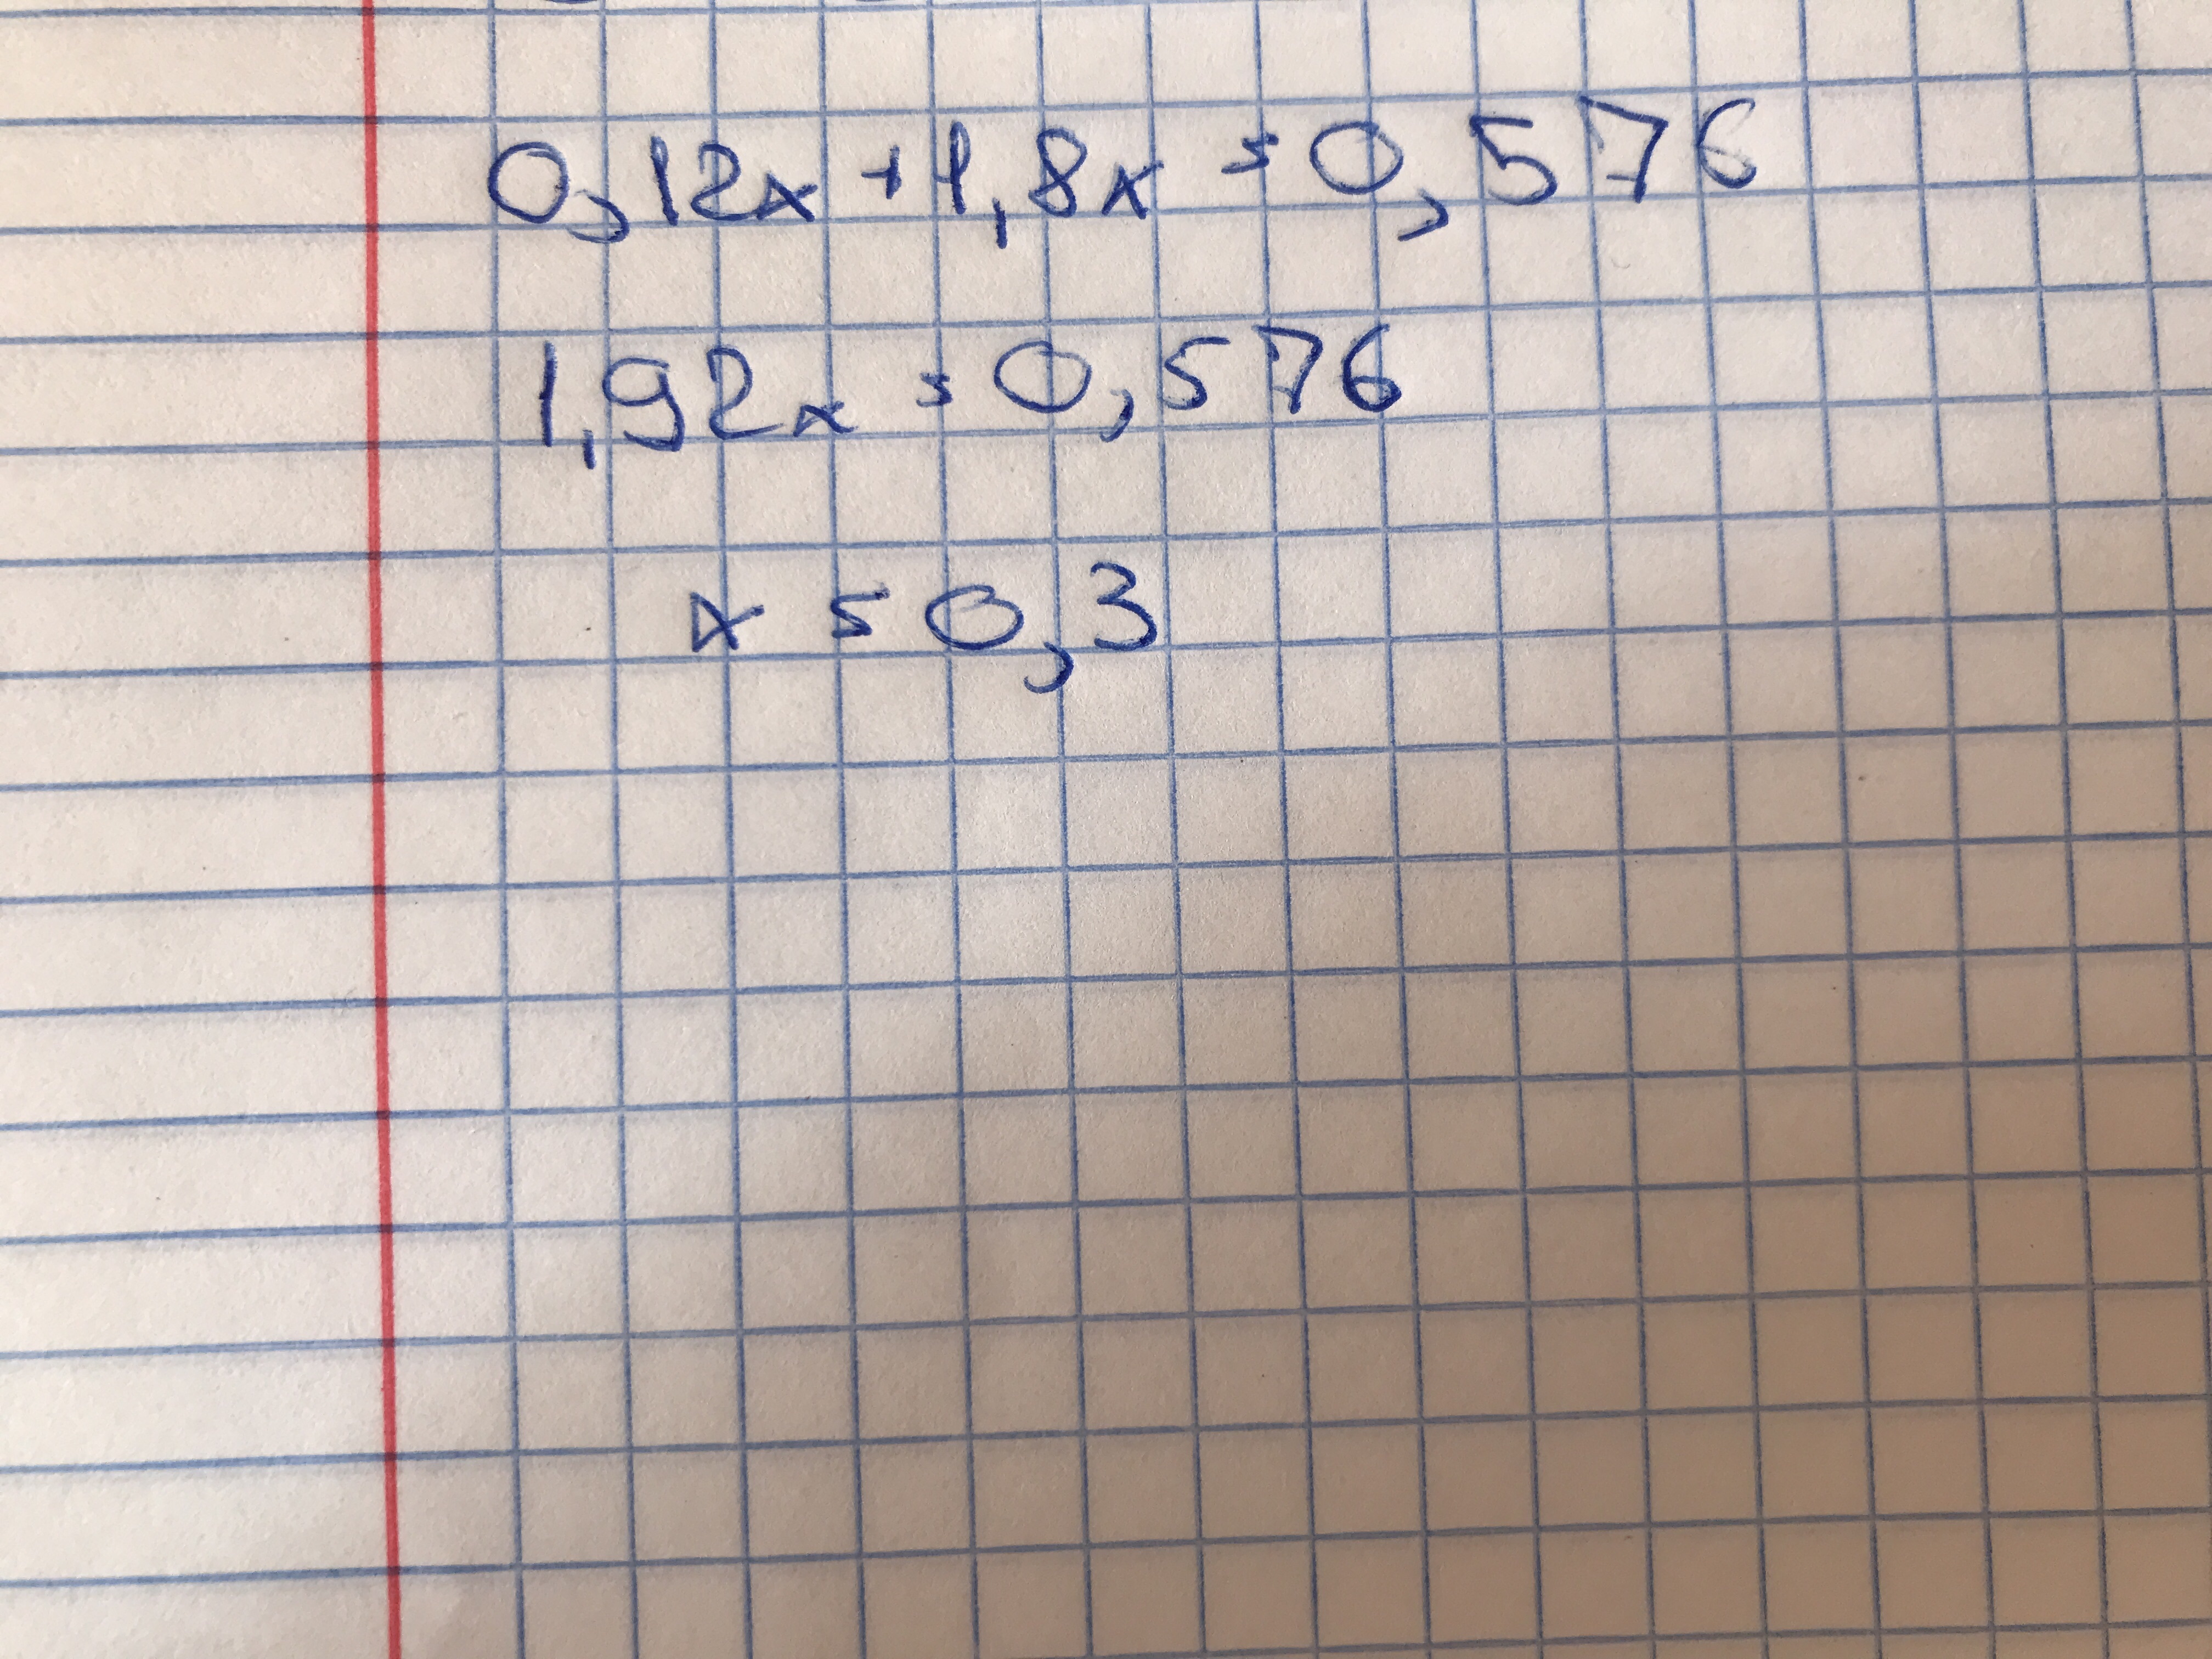 0,12x + 1,8x = 0,576
1,92x = 0,576
x = 0,3